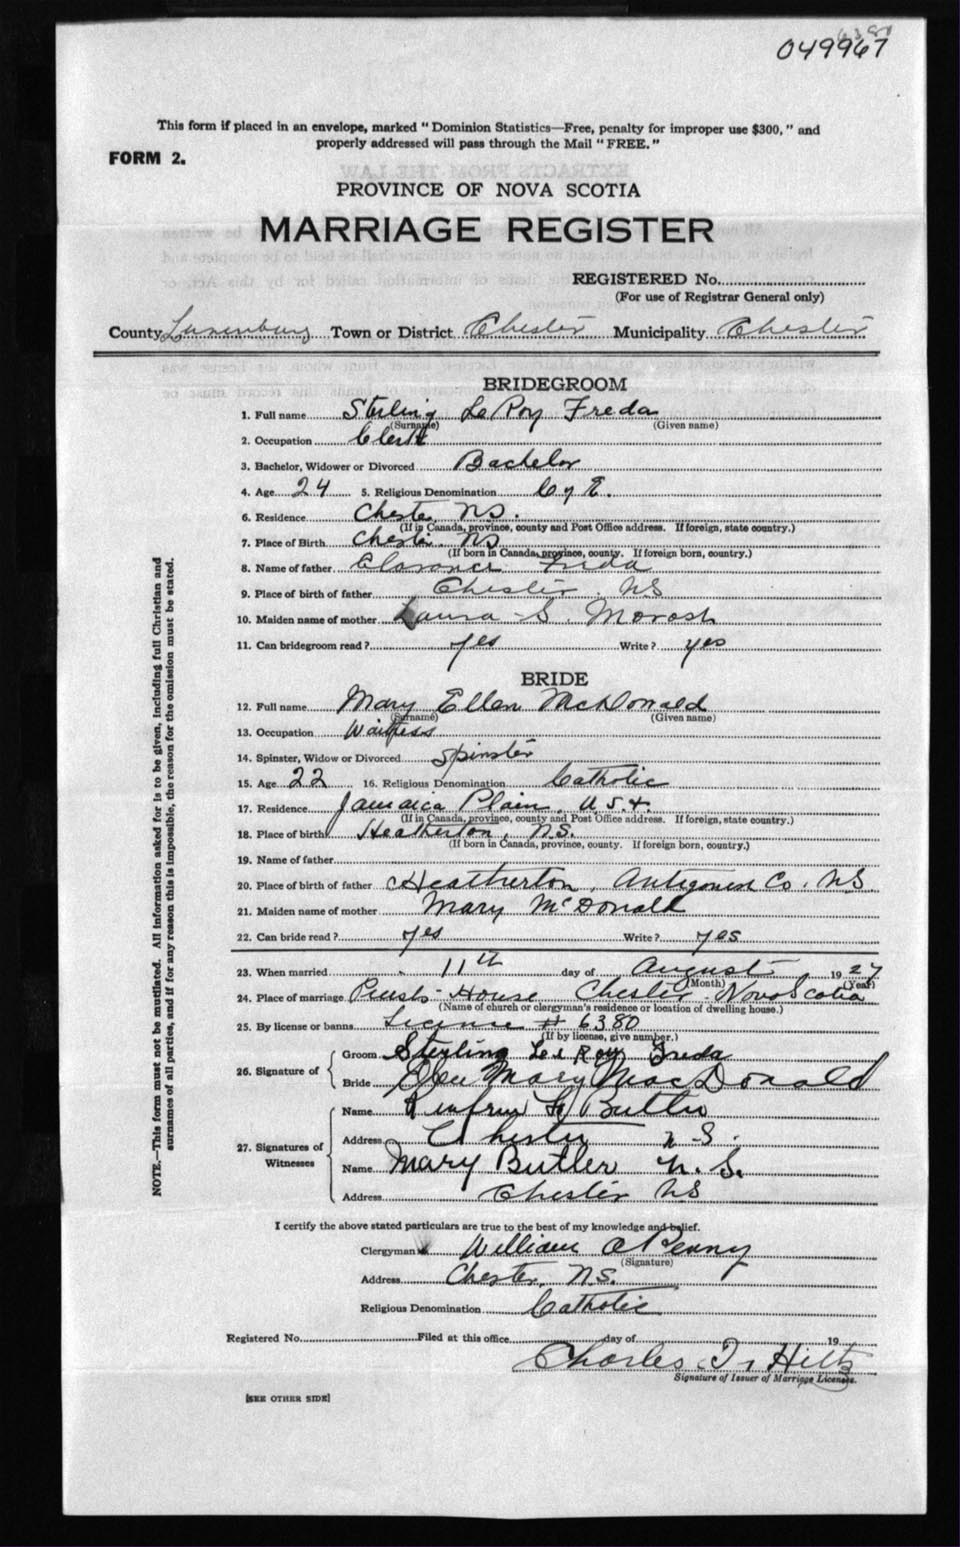 6380
049967
This form if placed in an envelope, marked "Dominion Statistics—Free, penalty for improper use $300," and
properly addressed will pass through the Mail "FREE."
FORM 2.
PROVINCE OF NOVA SCOTIA
MARRIAGE REGISTER
REGISTERED No.
(For use of Registrar General only)
County Lunenburg Town or District Chester Municipality Chester
BRIDEGROOM
1. Full name Sterling LeRoy Freda
(Surname) (Given name)
2. Occupation Clerk
3. Bachelor, Widower or Divorced Bachelor
4. Age 24 5. Religious Denomination C of E.
6. Residence Chester, N.S.
(If in Canada, province, county and Post Office address. If foreign, state country.)
7. Place of Birth Chester. NS
(If born in Canada, province, county. If foreign born, country.)
8. Name of father Clarance Freda
9. Place of birth of father Chester. NS
10. Maiden name of mother Laura S. Morash
11. Can bridegroom read? yes Write? yes
BRIDE
12. Full name Mary Ellen McDonald
(Surname) (Given name)
13. Occupation Waitress
14. Spinster, Widow or Divorced Spinster
15. Age 22 16. Religious Denomination Catholic
17. Residence Jamaica Plain, U.S.A.
(If in Canada, province, county and Post Office address. If foreign, state country.)
18. Place of birth Heatherton, N.S.
(If born in Canada, province, county. If foreign born, country.)
19. Name of father
20. Place of birth of father Heatherton, Antigonish Co. NS
21. Maiden name of mother Mary McDonald
22. Can bride read? yes Write? yes
23. When married 11th day of August 1927
(Month) (Year)
24. Place of marriage Priests House Chester Nova Scotia
(Name of church or clergyman's residence or location of dwelling house.)
25. By license or banns License # 6380
(If by license, give number.)
26. Signature of
Groom Sterling LeRoy Freda
Bride Mary MacDonald
27. Signatures of Witnesses
Name Butler
Address Chester N.S.
Name Mary Butler N.S.
Address Chester NS
I certify the above stated particulars are true to the best of my knowledge and belief.
Clergyman William Penny
(Signature)
Address Chester, N.S.
Religious Denomination Catholic
Registered No. Filed at this office day of 19
Charles T. Hiltz
Signature of Issuer of Marriage Licenses.
[SEE OTHER SIDE]
NOTE.—This form must not be mutilated. All information asked for is to be given, including full Christian and
surnames of all parties, and if for any reason this is impossible, the reason for the omission must be stated.